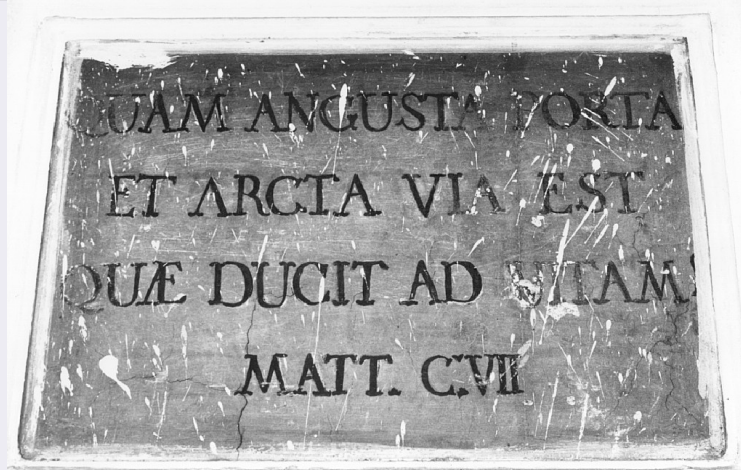 QUAM ANGUSTA PORTA
ET ARCTA VIA EST
QUÆ DUCIT AD VITAM!
MATT. C.VII